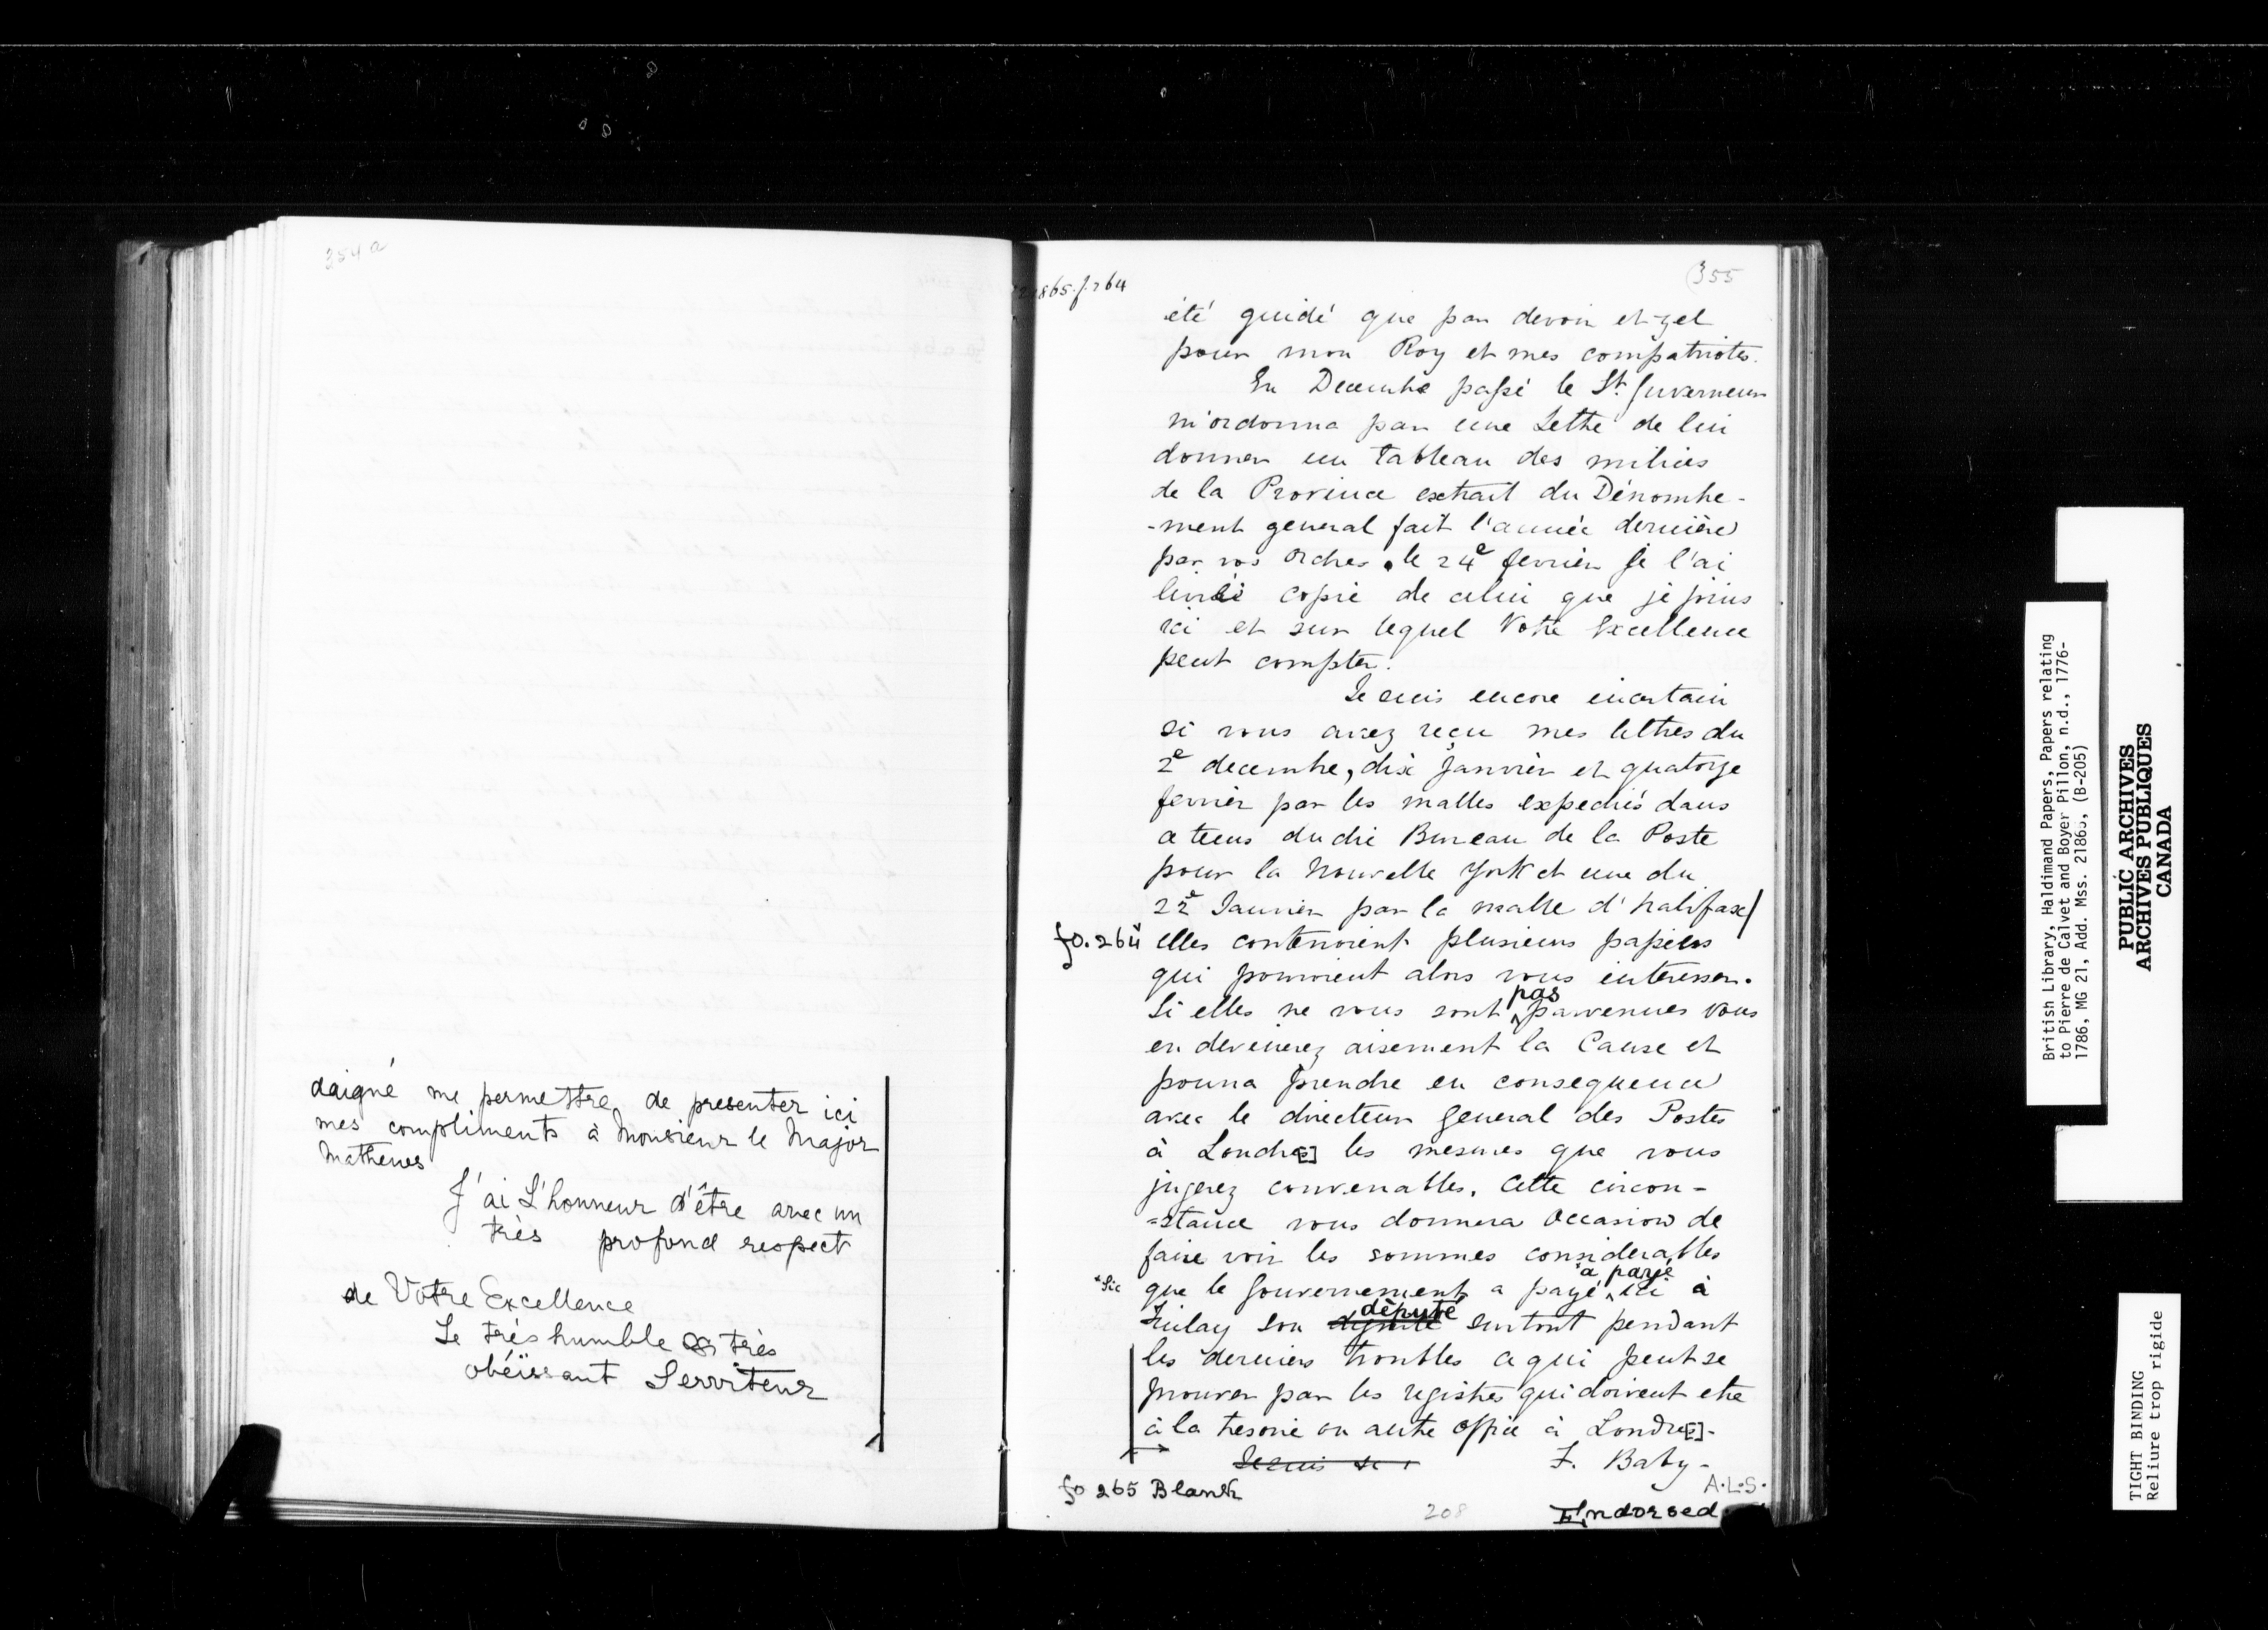 354a
daigné me permettre, de presenter ici
mes compliments à Monsieur le Major
Mathews
J'ai L'honneur d'être avec un
très profond respect
de Votre Excellence
Le très humble & très
obéissant Serviteur
21865.f.264
355
été guidé que par devoir et zel
pour mon Roy et mes compatriotes.
En Decembre passé le Lt. Guverneur
m'ordonna par une Lettre de lui
donner un tableau des milices
de la Province extrait du Dénombre-
-ment general fait l'année dernière
par vos ordres. le 24e fevrier je l'ai
livré copie de celui que je joins
ici et sur lequel Votre Excellence
peut compter.
Je suis encore incertain
si vous avez reçu mes lettres du
2e decembre, dix janvier et quatorze
fevrier par les malles expediés dans
a tems du dit Bureau de la Poste
pour la Nouvelle York et une du
22e Janvier par la malle d'halifax/
fo. 264v elles contenoient plusieurs papiers
qui pouvoient alors vous interesser.
Si elles ne vous sont pas parvenues vous
en devinerez aisement la Cause et
pourra prendre en consequence
avec le directeur general des Postes
à Londre[s] les mesures que vous
jugerez convenables. Cette circon-
=stance vous donnera occasion de
faire voir les sommes considerables
a payé
*Sic que le Gouvernement a payé ici à
député
Finlay son surtout pendant
les derniers troubles ce qui peut se
prouver par les registres qui doivent etre
à la tresorie ou autre office à Londre[s].
Je suis &c F. Baby-
A.L.S.
fo 265 Blank
208
Endorsed
British Library, Haldimand Papers, Papers relating
to Pierre de Calvet and Boyer Pillon, n.d., 1776-
1786, MG 21, Add. Mss. 21865, (B-205)
PUBLIC ARCHIVES
ARCHIVES PUBLIQUES
CANADA
TIGHT BINDING
Reliure trop rigide